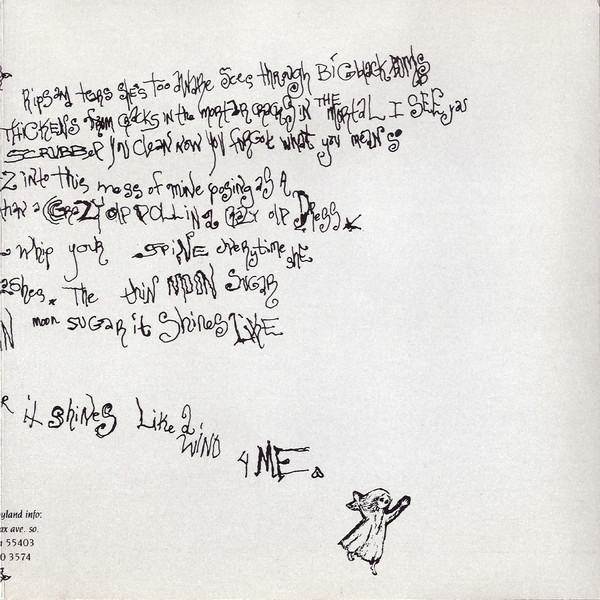 Rips and tears she's too aware Sees through BiG black
THiCKENS from CRacks in the mortar cracks in THE MORtaL I SEE you
SCRUBBed you clean now you forgot what you means
into this mess of mine posing as A
than a CRAZY OlD DOLL in a CRAZY OlD DRESS
whip your SPiNE everytime she
ashes. The thin MOON SUGAR
moon SUGaR it Shines LIKE
R it shines Like a
WIND
4 ME.
yland info:
ax ave. so.
55403
0 3574